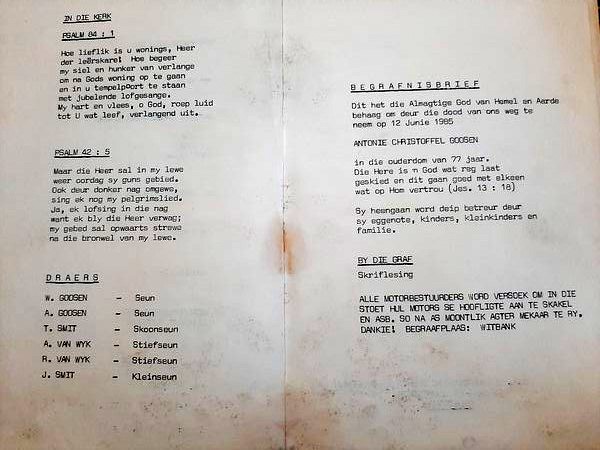 IN DIE KERK
PSALM 84 : 1
Hoe lieflik is u wonings, Heer
der leërskare! Hoe begeer
my siel en hunker van verlange
om na Gods woning op te gaan
en in u tempelpoort te staan
met jubelende lofgesange.
My hart en vlees, o God, roep luid
tot U wat leef, verlangend uit.
PSALM 42 : 5
Maar die Heer sal in my lewe
weer oordag sy guns gebied.
Ook deur donker nag omgewe,
sing ek nog my pelgrimslied.
Ja, ek lofsing in die nag
want ek bly die Heer verwag;
my gebed sal opwaarts strewe
na die bronwel van my lewe.
DRAERS
W. GOOSEN - Seun
A. GOOSEN - Seun
T. SMIT - Skoonseun
A. VAN WYK - Stiefseun
R. VAN WYK - Stiefseun
J. SMIT - Kleinseun
BEGRAFNISBRIEF
Dit het die Almagtige God van Hemel en Aarde
behaag om deur die dood van ons weg te
neem op 12 Junie 1985
ANTONIE CHRISTOFFEL GOOSEN
in die ouderdom van 77 jaar.
Die Here is n God wat reg laat
geskied en dit gaan goed met elkeen
wat op Hom vertrou (Jes. 13 : 18)
Sy heengaan word deip betreur deur
sy eggenote, kinders, kleinkinders en
familie.
BY DIE GRAF
Skriflesing
ALLE MOTORBESTUURDERS WORD VERSOEK OM IN DIE
STOET HUL MOTORS SE HOOFLIGTE AAN TE SKAKEL
EN ASB. SO NA AS MOONTLIK AGTER MEKAAR TE RY.
DANKIE! BEGRAAFPLAAS: WITBANK